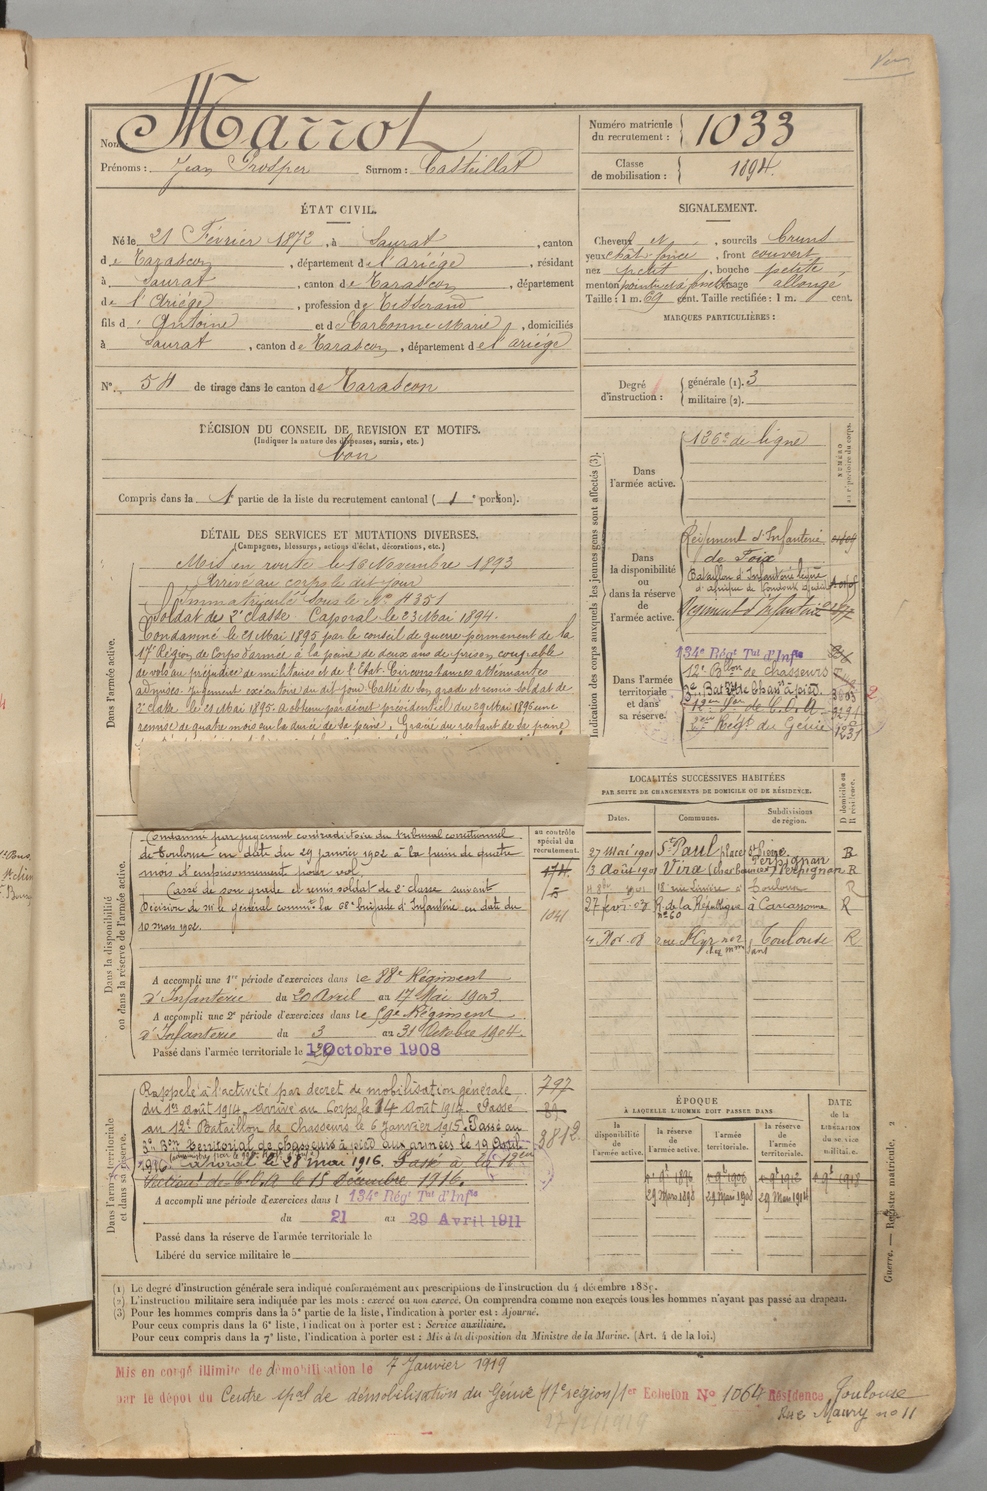 Nom: Marrot
Prénoms: Jean Prosper Surnom: Casteillat
Numéro matricule du recrutement: 1033
Classe de mobilisation: 1894.
ÉTAT CIVIL.
Né le 21 Février 1872, à Saurat, canton
de Tarascon, département de l'ariège, résidant
à Saurat, canton de Tarascon, département
de l'Ariège, profession de Tisserand
fils d' Antoine et de Carbonne Marie, domiciliés
à Saurat, canton de Tarascon, département de l'ariége
N° 54 de tirage dans le canton de Tarascon
SIGNALEMENT.
Cheveux et, sourcils bruns
yeux chât. foncé, front couvert
nez petit, bouche petite,
menton visage allongé
Taille: 1 m. 69 cent. Taille rectifiée: 1 m. cent.
MARQUES PARTICULIÈRES:
Degré d'instruction: générale (1). 3
militaire (2).
DÉCISION DU CONSEIL DE REVISION ET MOTIFS.
(Indiquer la nature des dispenses, sursis, etc.)
bon
Compris dans la 1e partie de la liste du recrutement cantonal (1e portion).
DÉTAIL DES SERVICES ET MUTATIONS DIVERSES.
(Campagnes, blessures, actions d'éclat, décorations, etc.)
Dans l'armée active.
Mis en route le 16 Novembre 1893
Arrivé au corps le dit jour
Immatriculé sous le N° 4351
Soldat de 2e classe. Caporal le 23 Mai 1894.
Condamné le 21 Mai 1895 par le conseil de guerre permanent de la
17e Région de Corps d'armée à la peine de deux ans de prison coupable
de vols au préjudice de militaires et de l'Etat. Circonstances atténuantes
admises. Jugement exécutoire du dit jour. Cassé de son grade et remis soldat de
2e classe le 21 Mai 1895. A obtenu par décret présidentiel du 29 Mai 1896 une
remise de quatre mois sur la durée de sa peine. Gracié du restant de sa peine
Indication des corps auxquels les jeunes gens sont affectés (3).
NUMÉRO au répertoire du corps.
Dans l'armée active.
126e de ligne
Dans la disponibilité ou dans la réserve de l'armée active.
Régiment d'Infanterie
de Foix
Bataillon d'Infanterie légère
Régiment d'Infanterie
Dans l'armée territoriale et dans sa réserve.
134e Régt Tal d'Infie
12e Bllon de chasseurs
3e Bat. Tal de Chasrs à pied 3803
2291
2ème Régt du Génie 1231
LOCALITÉS SUCCESSIVES HABITÉES
PAR SUITE DE CHANGEMENTS DE DOMICILE OU DE RÉSIDENCE.
Dates. Communes. Subdivisions de région. D domicile ou R résidence.
27 Mai 1901 St Paul place St Pierre. Perpignan R
13 Août 1901 Vira Perpignan R
1901 18 rue Toulouse R
27 fév. 07 R. de la République n° 60 à Carcassonne R
4 Nov. 08 rue n° 2 Toulouse R
Dans la disponibilité ou dans la réserve de l'armée active.
Condamné par jugement contradictoire du tribunal correctionnel
de Toulouse en date du 29 janvier 1902 à la peine de quatre
mois d'emprisonnement pour vol.
Cassé de son grade et remis soldat de 2e classe suivant
Décision de Mr le général commt la 68e brigade d'Infanterie en date du
10 mars 1902.
au contrôle spécial du recrutement.
1041
A accompli une 1re période d'exercices dans le 88e Régiment
d'Infanterie du 20 Avril au 17 Mai 1903.
A accompli une 2e période d'exercices dans le 59e Régiment
d'Infanterie du 3 au 31 Octobre 1904.
Passé dans l'armée territoriale le 1 Octobre 1908
Dans l'armée territoriale et dans sa réserve.
Rappelé à l'activité par décret de mobilisation générale
du 1er août 1914. Arrivé au Corps le 14 Août 1914. Passé
au 12e Bataillon de chasseurs le 6 Janvier 1915. Passé au
3e Bon Territorial de chasseurs à pied aux armées le 19 Avril
1916. le 28 mai 1916. Passé à la 12ème
Section de C.O.A le 15 décembre 1916.
797
3812
A accompli une période d'exercices dans l 134e Régt Tal d'Infie
du 21 au 29 Avril 1911
Passé dans la réserve de l'armée territoriale le
Libéré du service militaire le
ÉPOQUE
À LAQUELLE L'HOMME DOIT PASSER DANS
DATE de la LIBÉRATION du service militaire.
la disponibilité de l'armée active. la réserve de l'armée active. l'armée territoriale. la réserve de l'armée territoriale.
29 Mars 1898 29 Mars 1908 29 Mars 1914
Guerre. — Registre matricule. 2
(1) Le degré d'instruction générale sera indiqué conformément aux prescriptions de l'instruction du 4 décembre 1889.
(2) L'instruction militaire sera indiquée par les mots: exercé ou non exercé. On comprendra comme non exercés tous les hommes n'ayant pas passé au drapeau.
(3) Pour les hommes compris dans la 5e partie de la liste, l'indication à porter est: Ajourné.
Pour ceux compris dans la 6e liste, l'indication à porter est: Service auxiliaire.
Pour ceux compris dans la 7e liste, l'indication à porter est: Mis à la disposition du Ministre de la Marine. (Art. 4 de la loi.)
Mis en congé illimité de démobilisation le 7 Janvier 1919
par le dépôt du Centre spal de démobilisation du Génie (17e région) 1er Echelon N° 1064 Résidence, Toulouse
Rue Maury no 11
27/2/1919